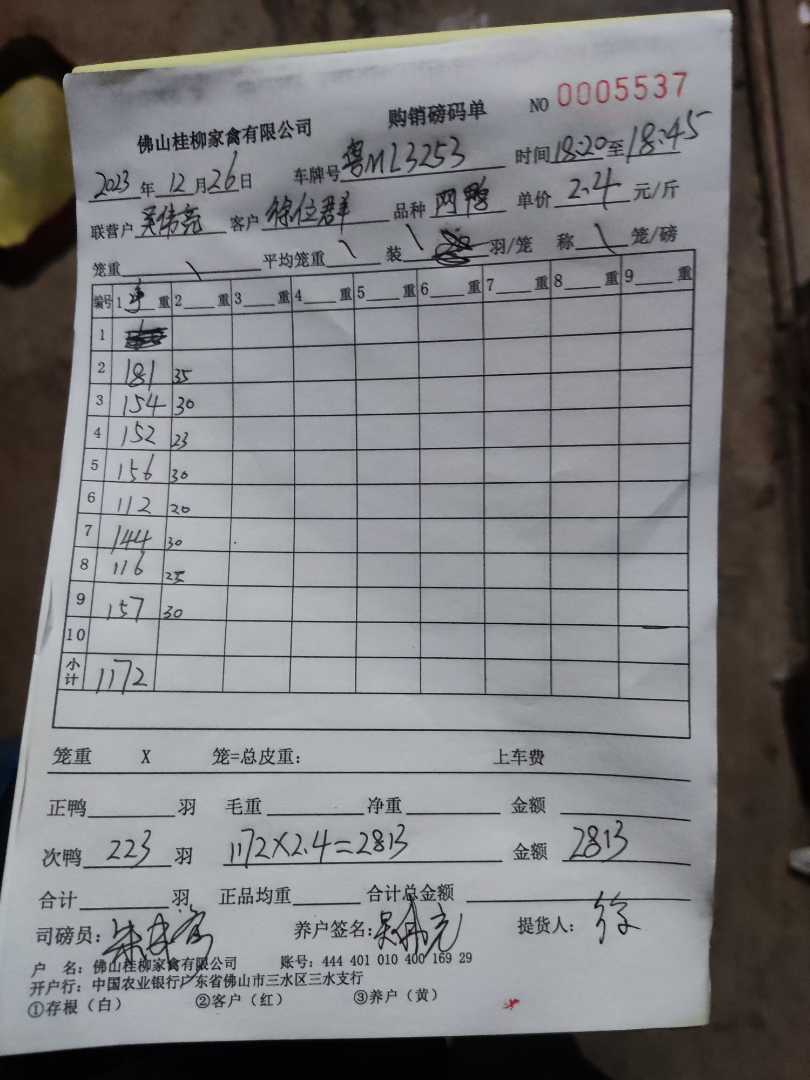 佛山桂柳家禽有限公司 购销磅码单 NO 0005537
2023年12月26日 车牌号粤ML3253 时间18:20至18:45
联营户吴伟亮 客户徐位群 品种网鸭 单价2.4元/斤
笼重 \ 平均笼重 \ 装 \ 羽/笼 称 \ 笼/磅
编号 1 重 2 重 3 重 4 重 5 重 6 重 7 重 8 重 9 重
1
2 181 35
3 154 30
4 152 23
5 156 30
6 112 20
7 144 30
8 116 25
9 157 30
10
小计 1172
笼重 X 笼=总皮重: 上车费
正鸭 羽 毛重 净重 金额
次鸭 223 羽 1172X2.4=2813 金额 2813
合计 羽 正品均重 合计总金额
司磅员: 养户签名:吴伟亮 提货人: 徐
户 名: 佛山桂柳家禽有限公司 账号: 444 401 010 400 169 29
开户行: 中国农业银行广东省佛山市三水区三水支行
①存根（白） ②客户（红） ③养户（黄）